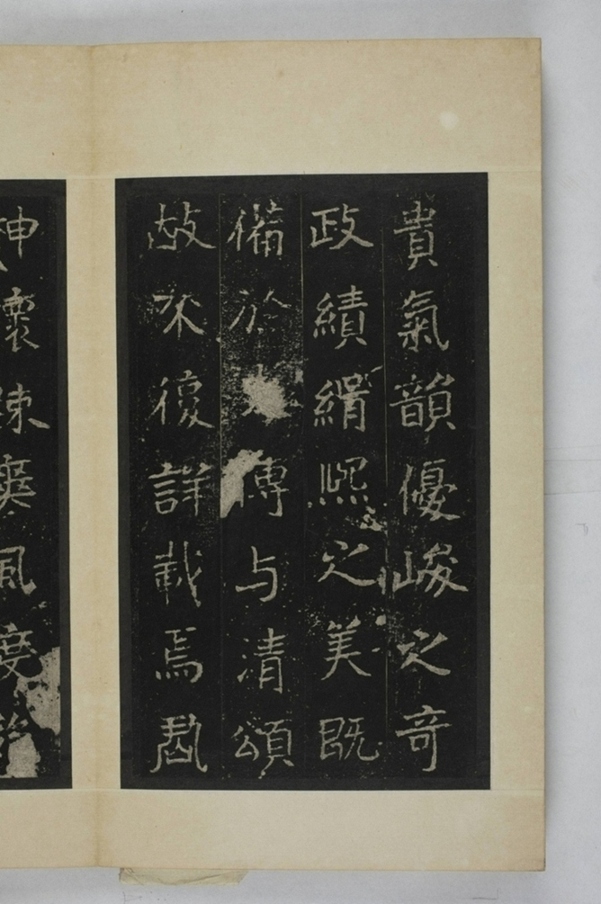 貴氣韻優峻之奇
政績緝熙之美既
備於傳与清頌
故不復詳載焉
神懷疎爽風度